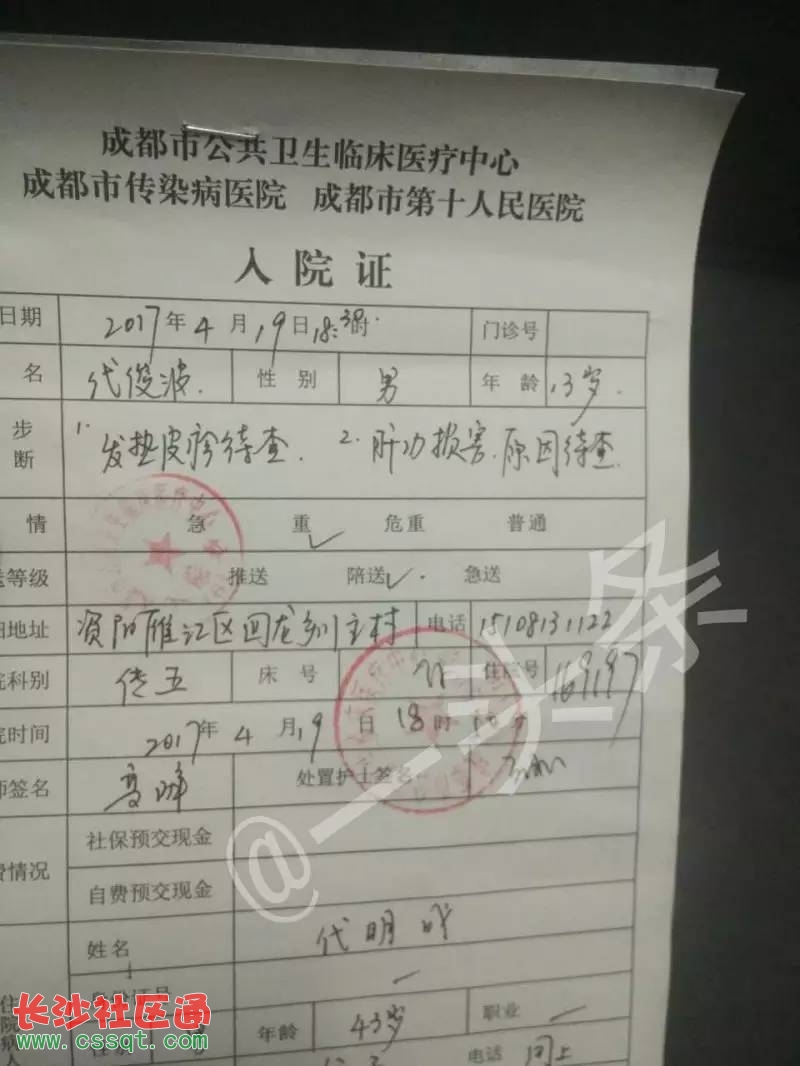 成都市公共卫生临床医疗中心
成都市传染病医院 成都市第十人民医院
入院证
日期 2017年4月19日18:30时 门诊号
名 代俊波 性别 男 年龄 13岁
步断 1. 发热皮疹待查. 2. 肝功损害原因待查
情 急 重 ✓ 危重 普通
送等级 推送 陪送 ✓ 急送
地址 资阳雁江区回龙乡 村 电话 15108131122
院科别 传五 床号 住院号 169197
院时间 2017年4月19日18时 分
师签名 处置护士签名
费情况 社保预交现金
自费预交现金
住院病人 姓名 代明
身份证号
性别 年龄 43岁 职业
电话 同上
@一头条
长沙社区通
www.cssqt.com